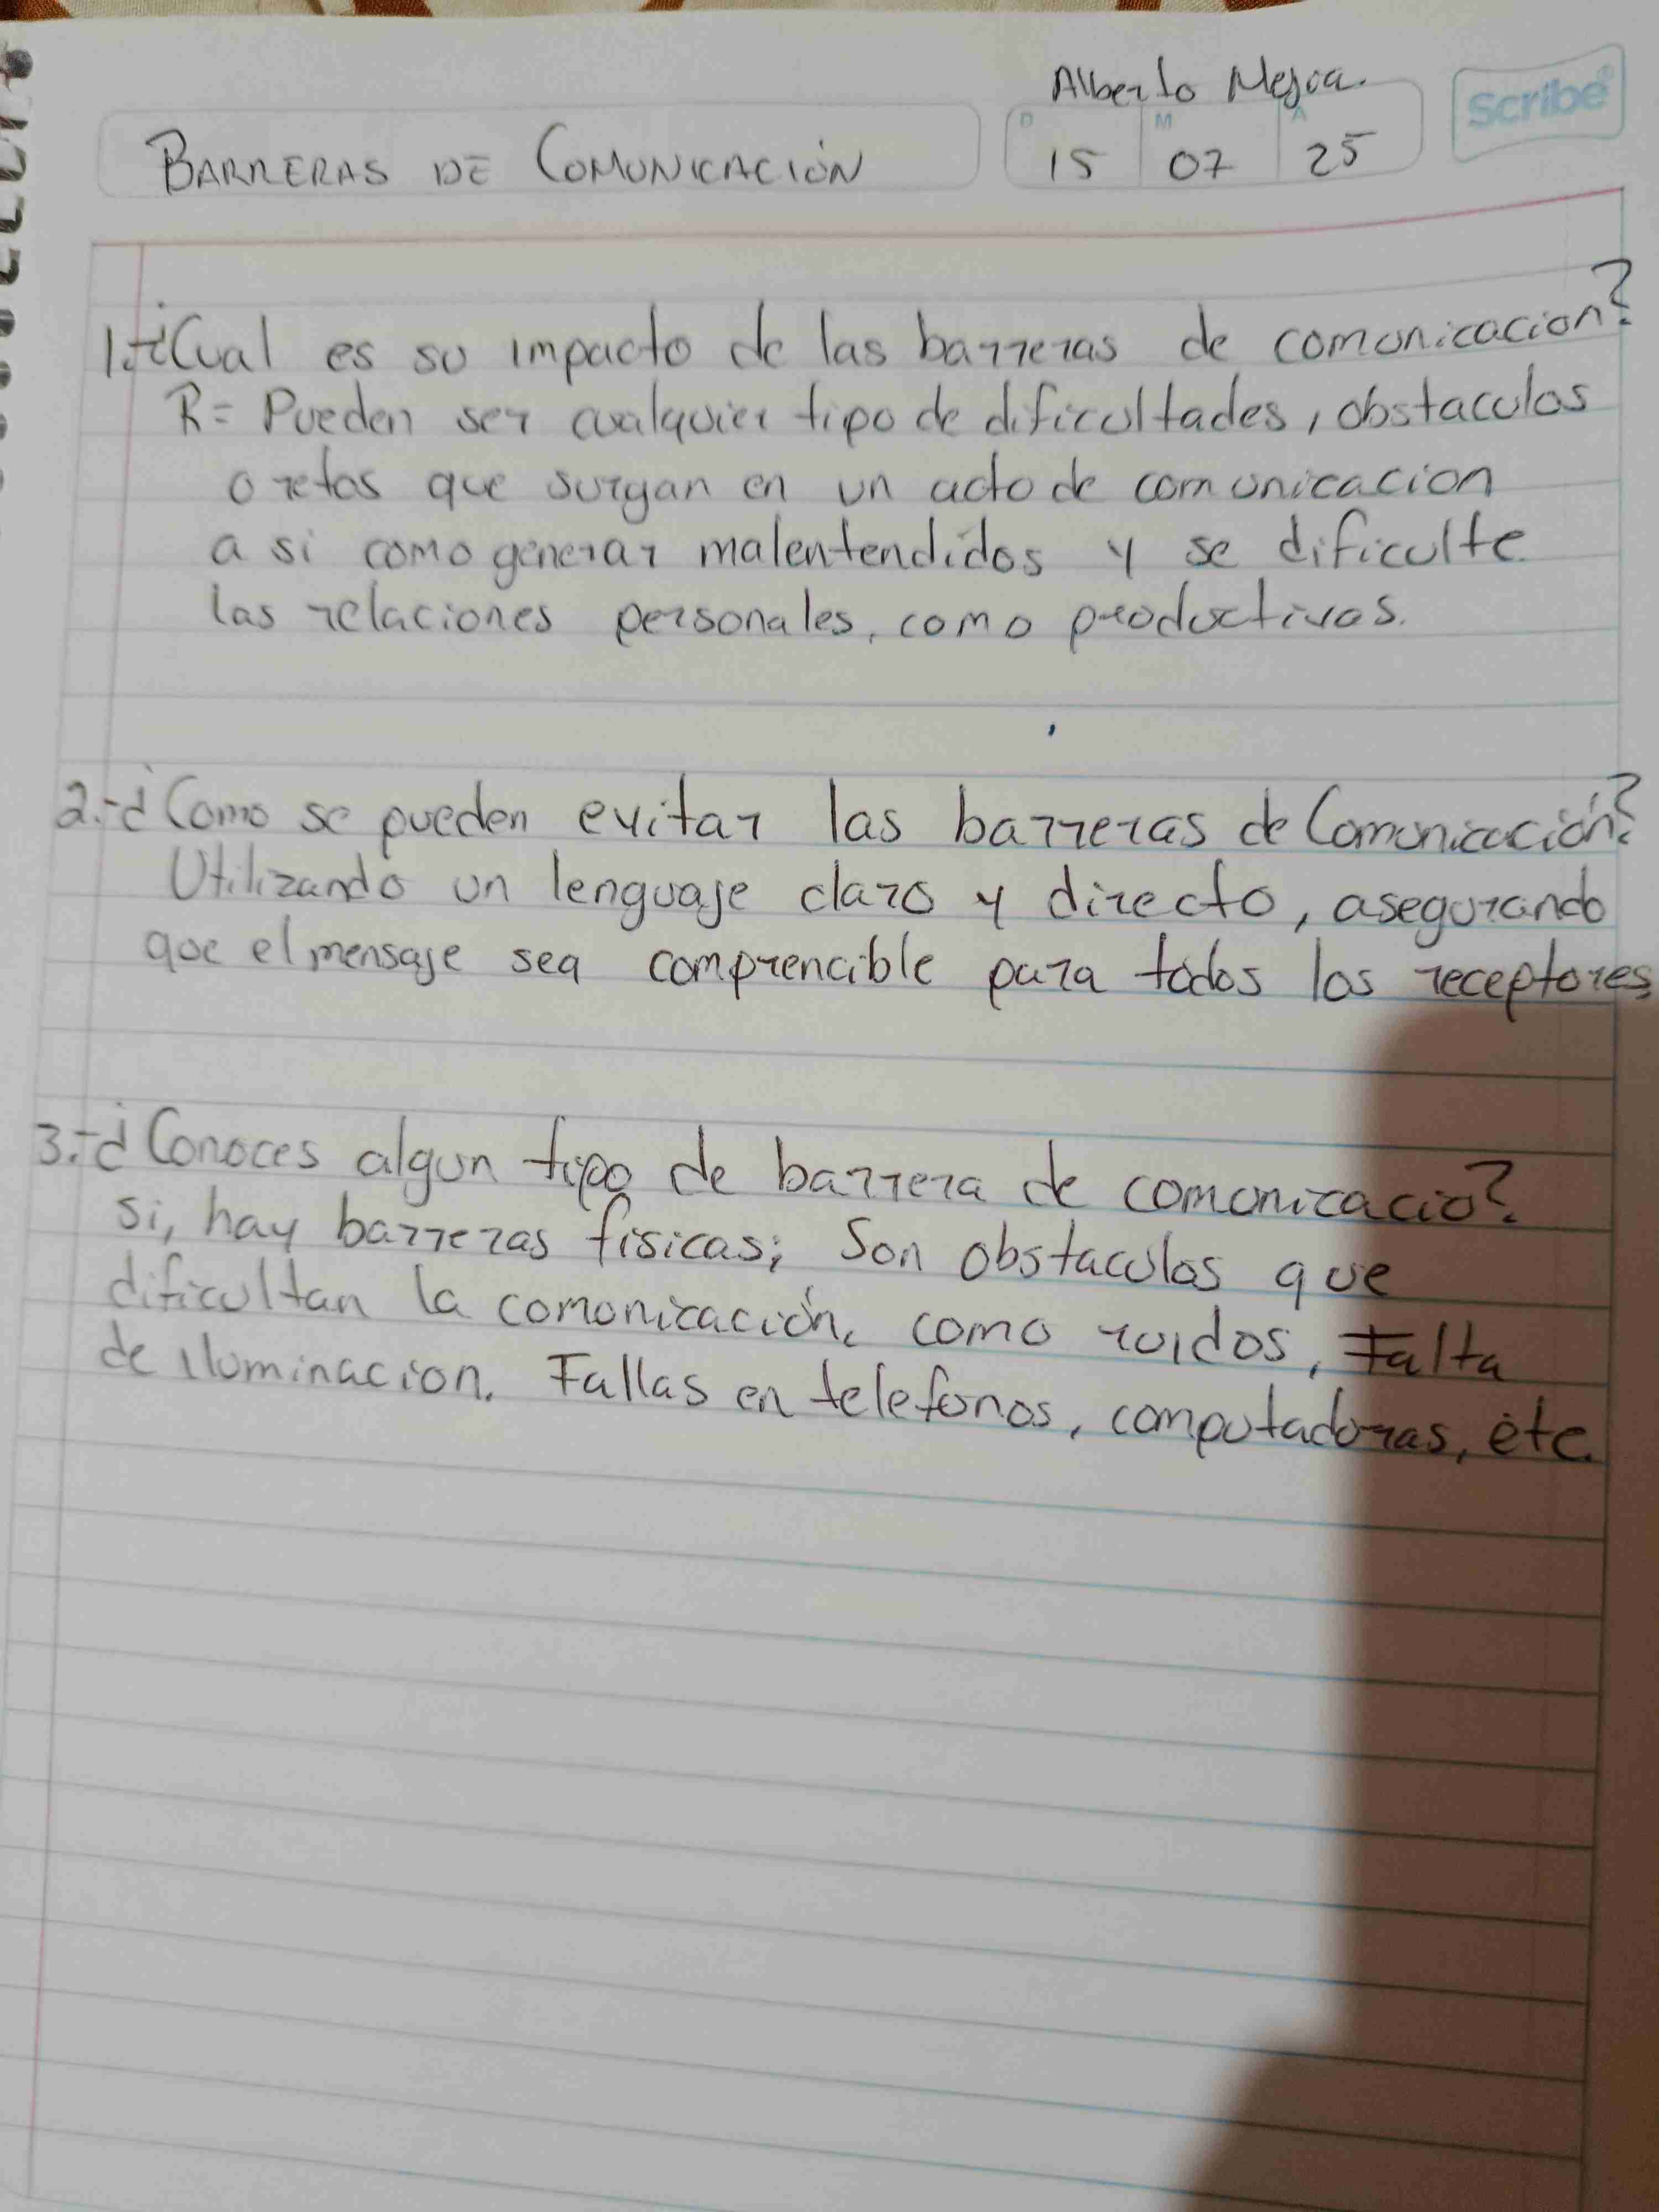 Alberto Mejia.
Scribe®
BARRERAS DE COMUNICACIÓN
D M A
15 07 25
1.-¿Cual es su impacto de las barreras de comunicacion?
R= Pueden ser cualquier tipo de dificultades, obstaculos
o retos que surgan en un acto de comunicacion
a si como generar malentendidos y se dificulte
las relaciones personales, como productivas.
2.-¿Como se pueden evitar las barreras de Comunicación?
Utilizando un lenguaje claro y directo, asegurando
que el mensaje sea comprencible para todos los receptores
3.-¿Conoces algun tipo de barrera de comunicacio?
si, hay barreras físicas; Son obstaculos que
dificultan la comunicación, como ruidos, Falta
de iluminacion. Fallas en telefonos, computadoras, etc.